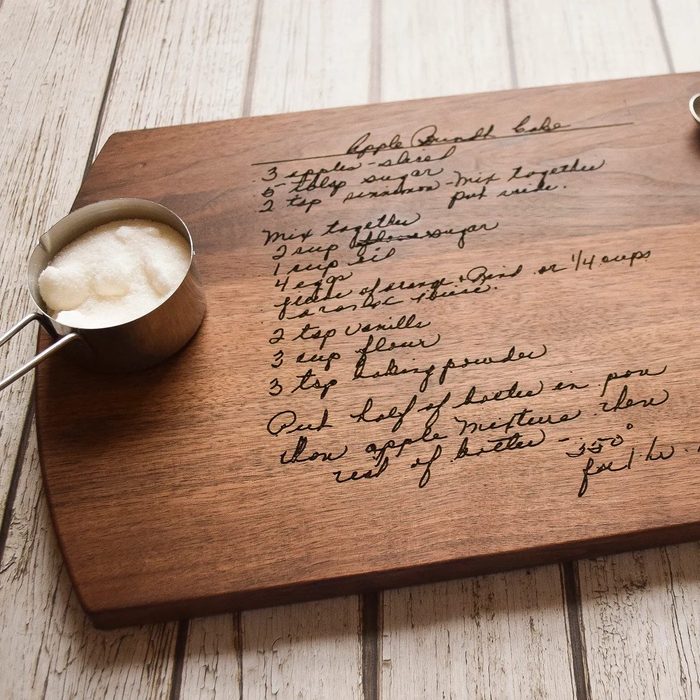 Apple Bundt Cake
3 apples - sliced
5 tblsp sugar
2 tsp cinnamon - Mix together
put aside.
Mix together
2 cup flour sugar
1 cup oil
4 eggs
of orange + Rind or 1/4 cups
orange
2 tsp vanilla
3 cup flour
3 tsp baking powder
Put half of batter in pan
then apple mixture then
rest of batter - 350°
for 1 hr.